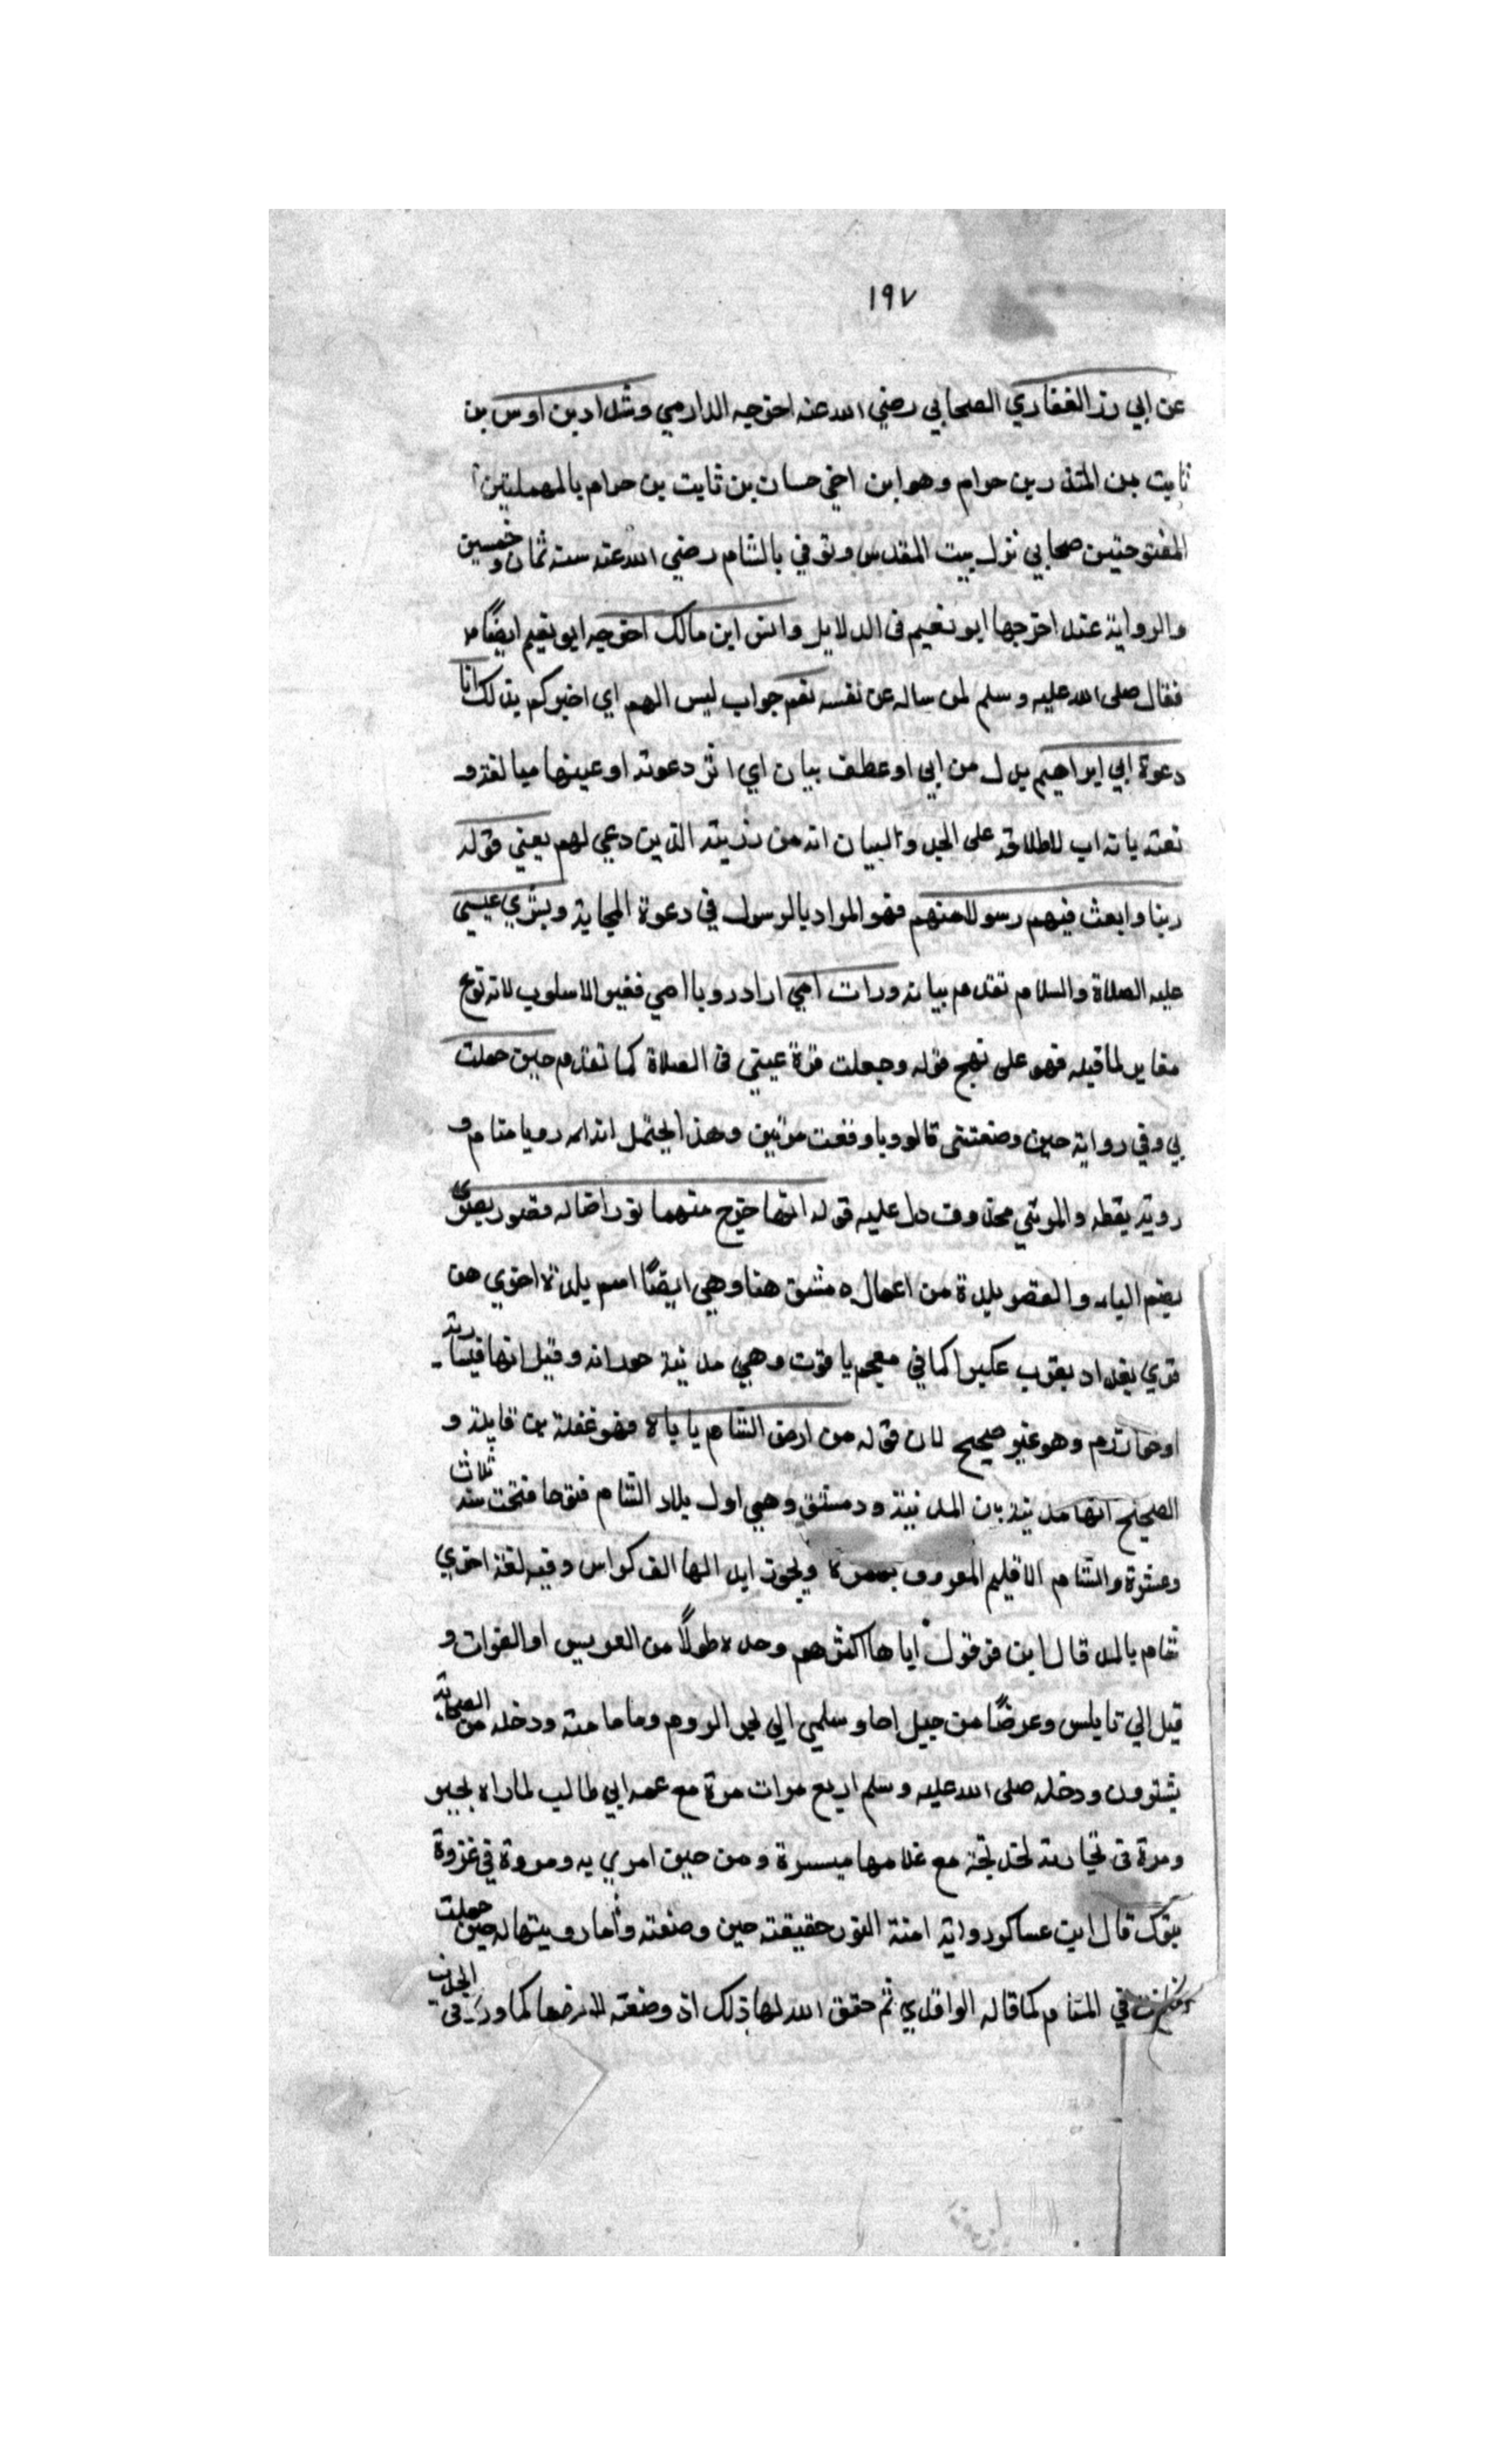 ١٩٧
عن ابي ذر الغفاري الصحابي رضي الله عنه اخرجه الدارمي وشداد بن اوس بن
ثابت بن المنذر بن حرام وهو ابن اخي حسان بن ثابت بن حرام بالمهملتين
المفتوحتين صحابي نزل بيت المقدس وتوفي بالشام رضي الله عنه سنة ثمان وخمسين
والرواية عنه اخرجها ابو نعيم في الدلايل وانس ابن مالك اخرجه ابو نعيم ايضًا
فقال صلى الله عليه وسلم لمن ساله عن نفسه نعم جواب ليس الهم اي اخبركم بذلك انا
دعوة ابي ابراهيم بدل من ابي او عطف بيان اي اثر دعوته او عينها مبالغة و
نعته بانه اب لاطلاقه على الجد والبيان انه من ذريته الذين دعي لهم يعني قوله
ربنا وابعث فيهم رسولا منهم فهو المراد بالرسول في دعوة المجابة وبشري عيسي
عليه الصلاة والسلام تقدم بيانه ورات امي اراد رويا امي فغير الاسلوب لانه نوع
مغاير لما قبله فهو على نهج قوله وجعلت قرة عيني في الصلاة كما تقدم حين حملت
بي وفي رواية حين وضعتني قالرويا وقعت مرتين وهذا يحتمل انه رويا منام و
روية يقظه والمرئي محذوف دل عليه قوله انها خرج منها نور اضا له قصور بصري
بضم الباء والقصر بلدة من اعمال دمشق هنا وهي ايضًا اسم بلدة اخري من
قري بغداد بقرب عكبرا كما في معجم ياقوت وهي مدينة حورانه وقيل انها قيسارية
او خوارزم وهو غير صحيح لان قوله من ارض الشام ياباه فهو غفلة من قايله و
الصحيح انها مدينة بين المدينة ودمشق وهي اول بلاد الشام فتوحا فتحت سنة ثلاث
وعشرة والشام الاقليم المعروف بهمزة ويجوز ابدالها الف كراس وفيه لغة اخري
شام بالمد قال ابن قرقول اباها اكثرهم وحده طولًا من العريس او الفرات و
قيل الي نابلس وعرضًا من جبل اجا وسلمي الي بحر الروم وما مامنه ودخله من الصحابة
ودخله صلى الله عليه وسلم اربع مرات مرة مع عمه ابي طالب لما راه بحير
ومرة في تجارته لخديجة مع غلامها ميسرة ومن حين اسري به ومروة في غزوة
تبوك قال ابن عساكر رواية امنة النور حقيقته حين وضعته وأما رويتها له حين حملت
في المنام كما قاله الواقدي ثم حقق الله لها ذلك اذ وضعته للارض كما ورد في الحديث